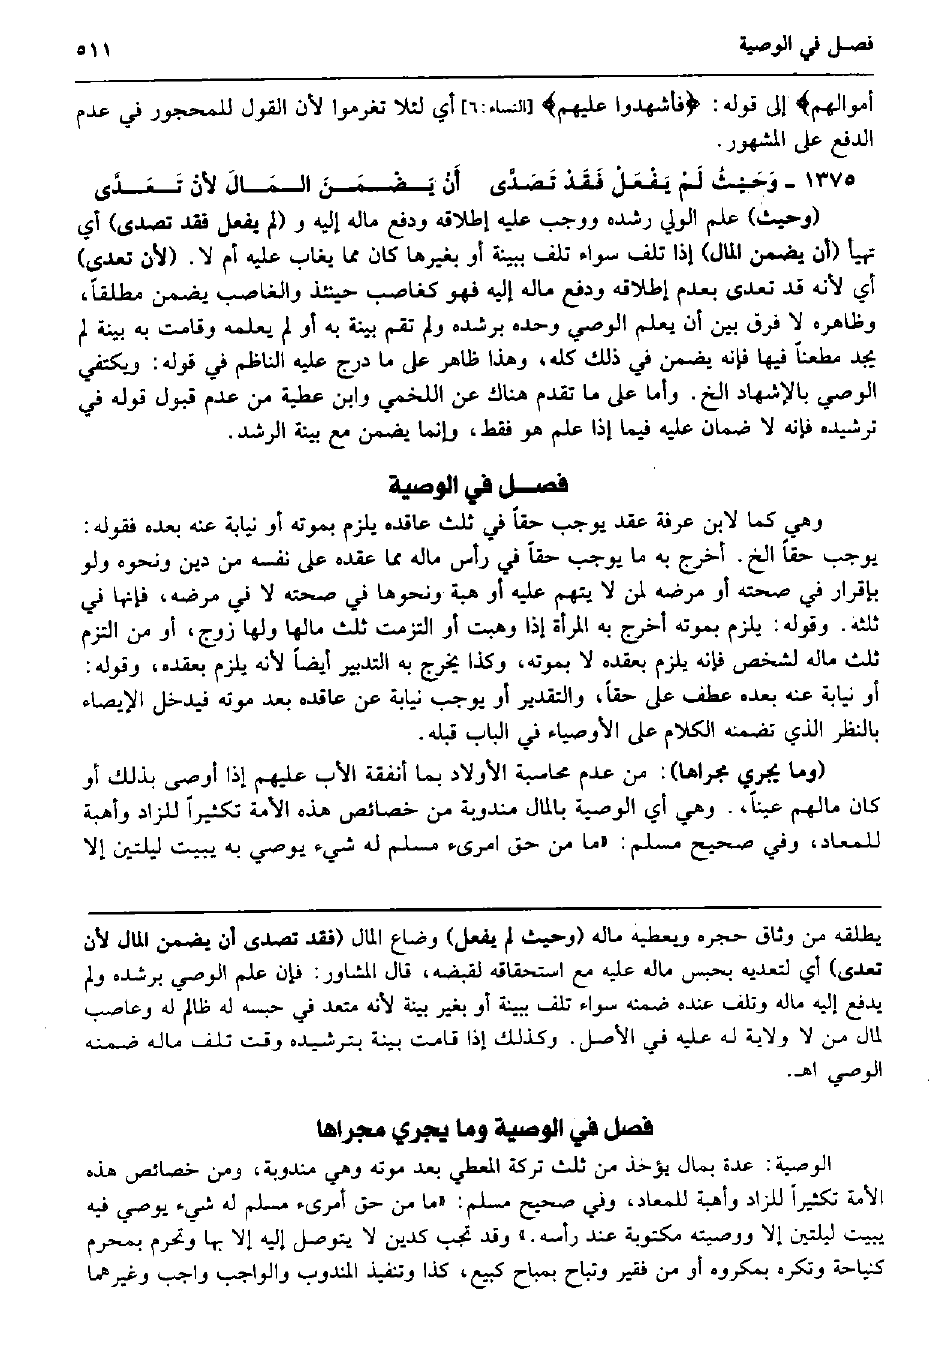 فصل في الوصية ٥١١
أموالهم﴾ إلى قوله: ﴿فأشهدوا عليهم﴾ [النساء: ٦] أي لئلا تغرموا لأن القول للمحجور في عدم
الدفع على المشهور.
١٣٧٥ - وَحَيْثُ لَمْ يَفْعَلْ فَقَدْ تَصَدَّى أَنْ يَضْمَنَ الْمَالَ لأَنْ تَعَدَّى
(وحيث) علم الولي رشده ووجب عليه إطلاقه ودفع ماله إليه و (لم يفعل فقد تصدى) أي
تهيأ (أن يضمن المال) إذا تلف سواء تلف ببينة أو بغيرها كان مما يغاب عليه أم لا. (لأن تعدى)
أي لأنه قد تعدى بعدم إطلاقه ودفع ماله إليه فهو كغاصب حينئذ والغاصب يضمن مطلقاً،
وظاهره لا فرق بين أن يعلم الوصي وحده برشده ولم تقم بينة به أو لم يعلمه وقامت به بينة لم
يجد مطعناً فيها فإنه يضمن في ذلك كله، وهذا ظاهر على ما درج عليه الناظم في قوله: ويكتفي
الوصي بالإشهاد الخ. وأما على ما تقدم هناك عن اللخمي وابن عطية من عدم قبول قوله في
ترشيده فإنه لا ضمان عليه فيما إذا علم هو فقط، وإنما يضمن مع بينة الرشد.
فصل في الوصية
وهي كما لابن عرفة عقد يوجب حقاً في ثلث عاقده يلزم بموته أو نيابة عنه بعده فقوله:
يوجب حقاً الخ. أخرج به ما يوجب حقاً في رأس ماله مما عقده على نفسه من دين ونحوه ولو
بإقرار في صحته أو مرضه لمن لا يتهم عليه أو هبة ونحوها في صحته لا في مرضه، فإنها في
ثلثه. وقوله: يلزم بموته أخرج به المرأة إذا وهبت أو التزمت ثلث مالها ولها زوج، أو من التزم
ثلث ماله لشخص فإنه يلزم بعقده لا بموته، وكذا يخرج به التدبير أيضاً لأنه يلزم بعقده، وقوله:
أو نيابة عنه بعده عطف على حقاً، والتقدير أو يوجب نيابة عن عاقده بعد موته فيدخل الإيصاء
بالنظر الذي تضمنه الكلام على الأوصياء في الباب قبله.
(وما يجري مجراها): من عدم محاسبة الأولاد بما أنفقة الأب عليهم إذا أوصى بذلك أو
كان مالهم عيناً،. وهي أي الوصية بالمال مندوبة من خصائص هذه الأمة تكثيراً للزاد وأهبة
للمعاد، وفي صحيح مسلم: «ما من حق امرىء مسلم له شيء يوصي به يبيت ليلتين إلا
يطلقه من وثاق حجره ويعطيه ماله (وحيث لم يفعل) وضاع المال (فقد تصدى أن يضمن المال لأن
تعدى) أي لتعديه بحبس ماله عليه مع استحقاقه لقبضه، قال المشاور: فإن علم الوصي برشده ولم
يدفع إليه ماله وتلف عنده ضمنه سواء تلف ببينة أو بغير بينة لأنه متعد في حبسه له ظالم له وغاصب
لمال من لا ولاية له عليه في الأصل. وكذلك إذا قامت بينة بترشيده وقت تلف ماله ضمنه
الوصي اهـ.
فصل في الوصية وما يجري مجراها
الوصية: عدة بمال يؤخذ من ثلث تركة المعطي بعد موته وهي مندوبة، ومن خصائص هذه
الأمة تكثيراً للزاد وأهبة للمعاد، وفي صحيح مسلم: «ما من حق أمرىء مسلم له شيء يوصي فيه
يبيت ليلتين إلا ووصيته مكتوبة عند رأسه.» وقد تجب كدين لا يتوصل إليه إلا بها وتحرم بمحرم
كنياحة وتكره بمكروه أو من فقير وتباح بمباح كبيع، كذا وتنفيذ المندوب والواجب واجب وغيرهما